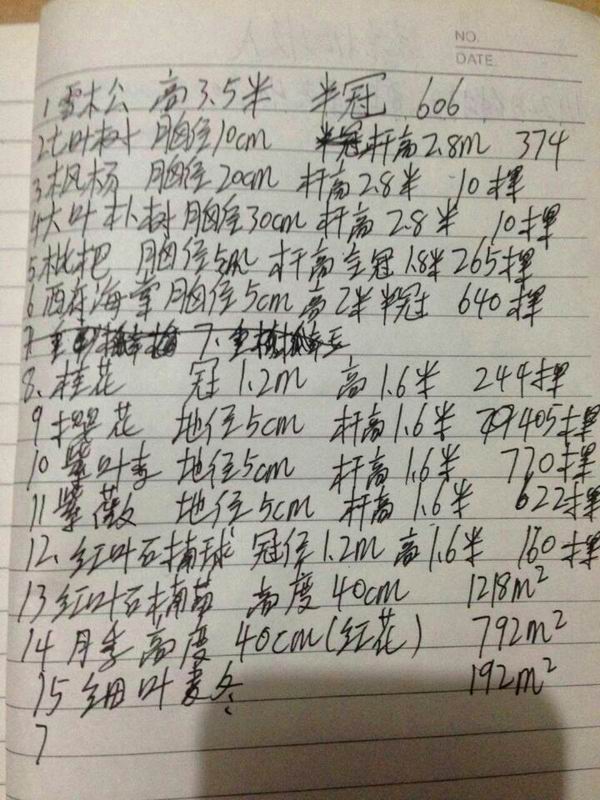 NO.
DATE
1雪松 高3.5米 半冠 606
2七叶树 胸径10cm 杆高2.8m 374
3.枫杨 胸径20cm 杆高2.8米 10棵
4大叶朴树 胸径30cm 杆高2.8米 10棵
5.枇杷 胸径5cm 杆高全冠1.8米265棵
6西府海棠 胸径5cm 高2米半冠 640棵
7. 7.
8.桂花 冠1.2m 高1.6米 244棵
9樱花 地径5cm 杆高1.6米 405棵
10紫叶李 地径5cm 杆高1.6米 770棵
11紫薇 地径5cm 杆高1.6米 622棵
12.红叶石楠球 冠径1.2m高1.6米 160棵
13红叶石楠苗 高度40cm 1218m²
14月季高度40cm(红花) 792m²
15细叶麦冬 192m²
7